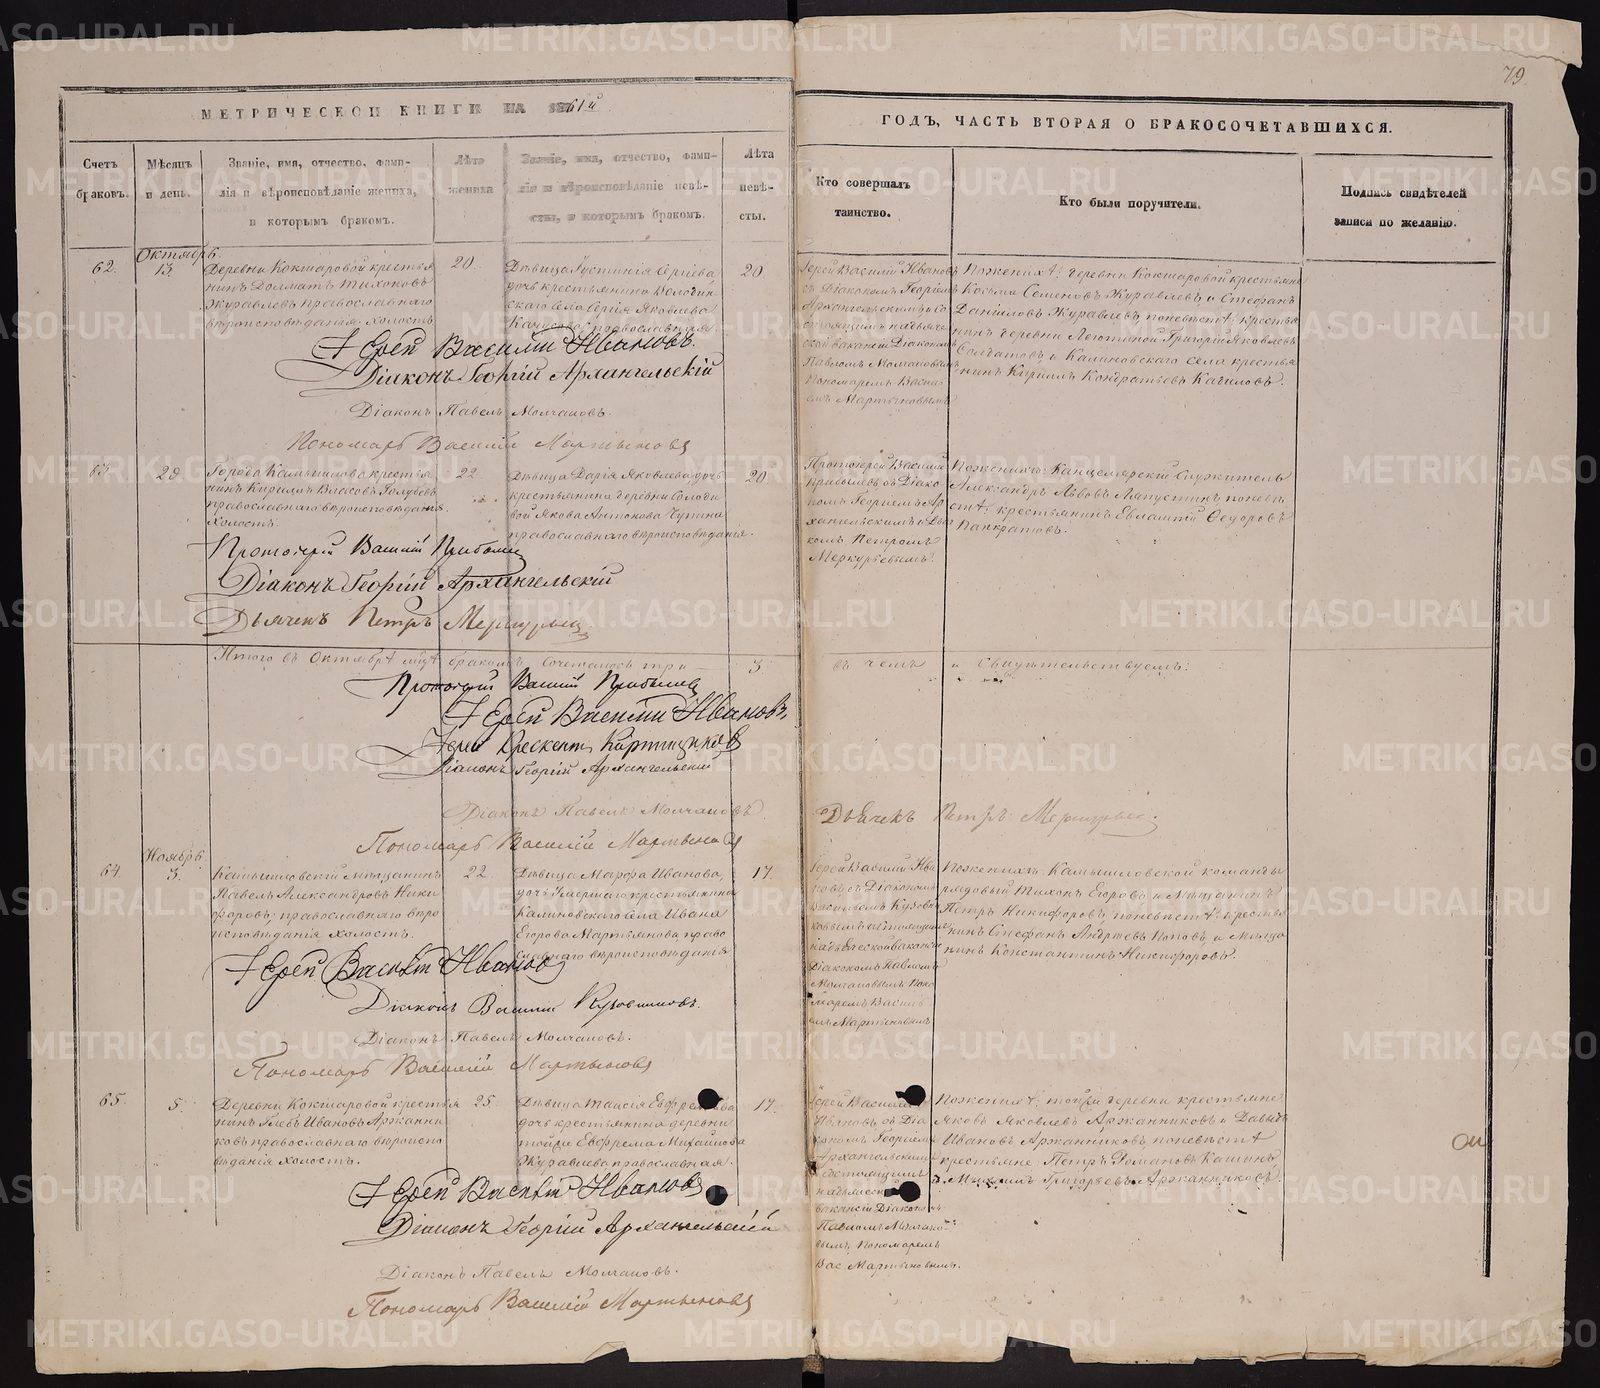 79
МЕТРИЧЕСКОЙ КНИГИ НА 1861й
ГОДЪ, ЧАСТЬ ВТОРАЯ О БРАКОСОЧЕТАВШИХСЯ.
Счетъ
браковъ.
Мѣсяцъ
и день.
Званіе, имя, отчество, фами-
лія и вѣроисповѣданіе жениха,
и которымъ бракомъ.
Лѣта
жениха
Званіе, имя, отчество, фами-
лія и вѣроисповѣданіе невѣ-
сты, и которымъ бракомъ.
Лѣта
невѣ-
сты.
Кто совершалъ
таинство.
Кто были поручители.
Подпись свидѣтелей
записи по желанію.
Октябрь.
62.
13.
Деревни Кокшаровой крестья
нинъ Долматъ Тихоновъ
Журавлевъ православнаго
вѣроисповѣданія, холостъ
20.
Дѣвица Іустинія Сергіева
дочь крестьянина
скаго села Сергія Яковлева
православная.
20
Іерей Василій Ивановъ
съ Діакономъ Георгіемъ
Архангельскимъ и со
стоящимъ на дьяче
ской вакансіи Діакономъ
Павломъ Молчановымъ
Пономаремъ Васи
емъ Мартьяновымъ
По женихѣ: деревни Кокшаровой крестьяне
Козьма Семеновъ Журавлевъ и Стефанъ
Даниловъ Журавлевъ по невѣстѣ: крестья
нинъ деревни Григорій Яковлевъ
Солдатовъ и Калиновскаго села крестья
нинъ Кириллъ Кондратьевъ
Іерей Василій Ивановъ.
Діаконъ Георгій Архангельскій
Діаконъ Павелъ Молчановъ.
Пономарь Василій Мартьяновъ
63.
29
Города Камышлова крестья
нинъ Кириллъ Власовъ Голубевъ
православнаго вѣроисповѣданія.
Холостъ.
22.
Дѣвица Дарія Яковлева дочь
крестьянина деревни Солоди
вой Якова Антонова Чупина
православнаго вѣроисповѣданія.
20
Протоіерей Василій
Прибылевъ съ Діако
номъ Георгіемъ Ар
хангельскимъ и Дья
комъ Петромъ
Меркурьевымъ.
По женихѣ: Канцелярскій Служитель
Александръ Львовъ Лапустинъ по невѣ
стѣ: крестьянинъ Евлампій Ѳедоровъ
Панкратовъ.
Протоіерей Василій Прибылевъ
Діаконъ Георгій Архангельскій
Дьячекъ Петръ Меркурьевъ
Итого въ Октябрѣ м͠цѣ бракомъ сочеталось три —
3
въ чемъ и свидѣтельствуемъ:
Протоіерей Василій Прибылевъ
Іерей Василій Ивановъ,
Іерей Крескентъ
Діаконъ Георгій Архангельскій
Діаконъ Павелъ Молчановъ.
Дьячекъ Петръ Меркурьевъ.
Пономарь Василій Мартьяновъ
Ноябрь.
64.
3.
Камышловскій мѣщанинъ
Павелъ Александровъ Ники
форовъ, православнаго вѣро
исповѣданія холостъ.
22.
Дѣвица Марфа Иванова,
дочь умершаго крестьянина
Калиновскаго села Ивана
Егорова Мартьянова, право
славнаго вѣроисповѣданія
17.
Іерей Василій Ива
новъ съ Діакономъ
Васильемъ Кузовни
ковымъ и состоящимъ
на дьяческой вакансіи
Діакономъ Павломъ
Молчановымъ Поно
маремъ Васи
емъ Мартьяновымъ
По женихѣ: Камышловской команды
рядовый Тихонъ Егоровъ, и Мѣщанинъ
Петръ Никифоровъ, по невѣстѣ: крестья
нинъ Стефанъ Андреевъ Поповъ, и Мѣща
нинъ Константинъ Никифоровъ.
Іерей Василій Ивановъ
Діаконъ Василій Кузовниковъ.
Діаконъ Павелъ Молчановъ.
Пономарь Василій Мартьяновъ
65.
5.
Деревни Кокшаровой крестья
нинъ Глебъ Ивановъ Аржанни
ковъ православнаго вѣроиспо
вѣданія холостъ.
25.
Дѣвица Таисія Ефремова
дочь крестьянина деревни
тойже Ефрема Михайлова
Журавлева православная.
17.
Іерей Василій
Ивановъ съ Діа
кономъ Георгіемъ
Архангельскимъ
и состоящимъ
на дьяческ
вакансіи Діакон
Павломъ Молчано
вымъ, Пономаремъ
Вас Мартьяновымъ.
По женихѣ: тойже деревни крестьяне
Яковъ Яковлевъ Аржанниковъ и Давыдъ
Ивановъ Аржанниковъ по невѣстѣ
крестьяне: Петръ Романовъ Кашинъ
и Михаилъ Григорьевъ Аржанниковъ.
Іерей Василій Ивановъ
Діаконъ Георгій Архангельскій
Діаконъ Павелъ Молчановъ.
Пономарь Василій Мартьяновъ
METRIKI.GASO-URAL.RU